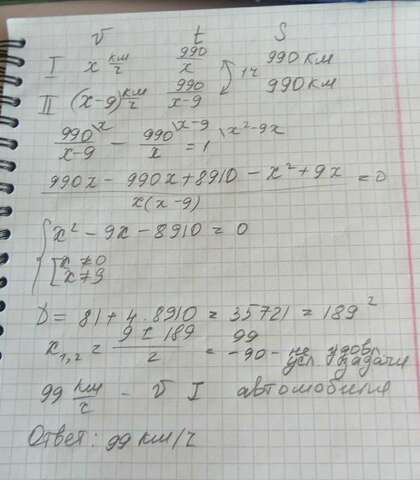 v t S
I x км/ч 990/x 990 км
1ч
II (x-9) км/ч 990/(x-9) 990 км
990\x/(x-9) - 990\x-9/x = 1\x²-9x
(990x - 990x + 8910 - x² + 9x)/(x(x-9)) = 0
{ x² - 9x - 8910 = 0
[ x ≠ 0
x ≠ 9
D = 81 + 4 . 8910 = 35721 = 189²
x₁,₂ = (9 ± 189)/2 = 99
-90 - не удовл.
усл. задачи
99 км/ч - v I автомобиля
Ответ: 99 км/ч